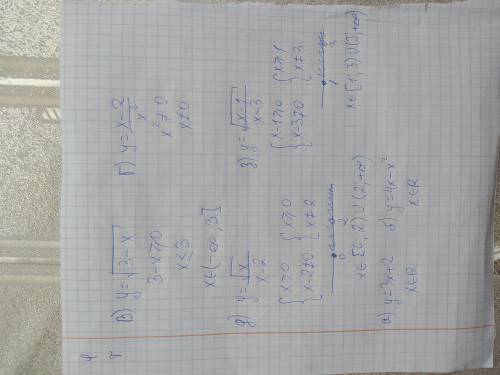 в) y=√(3-x)
3-x≥0
x≤3
x∈(-∞,3]
г) y=(x-2)/x²
x²≠0
x≠0
д) y=√x/(x-2)
{x≥0 {x≥0
{x-2≠0 {x≠2
0 2
x∈[0,2)∪(2,+∞)
з) y=√(x-1)/(x-3)
{x-1≥0 {x≥1
{x-3≠0 {x≠3
1 3
x∈[1,3)∪(3,+∞)
а) y=3x+2 б) y=4x-x²
x∈R x∈R